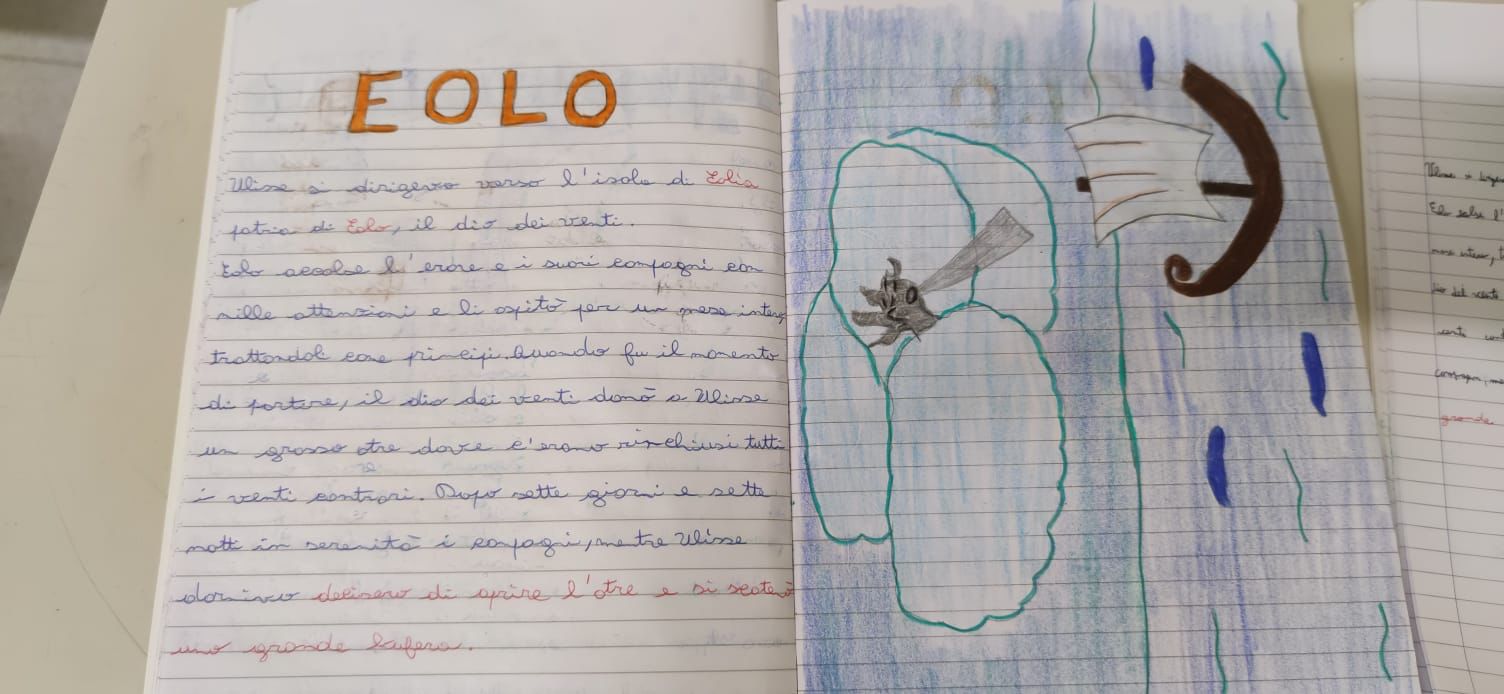 EOLO
Ulisse si dirigeva verso l'isola di Eolia
patria di Eolo, il dio dei venti.
Eolo accolse l'eroe e i suoi compagni con
mille attenzioni e li ospitò per un mese intero
trattandoli come principi. Quando fu il momento
di partire, il dio dei venti donò a Ulisse
un grosso otre dove c'erano rinchiusi tutti
i venti contrari. Dopo sette giorni e sette
notti in serenità i compagni, mentre Ulisse
dormiva decisero di aprire l'otre e si scatenò
una grande bufera.
grande